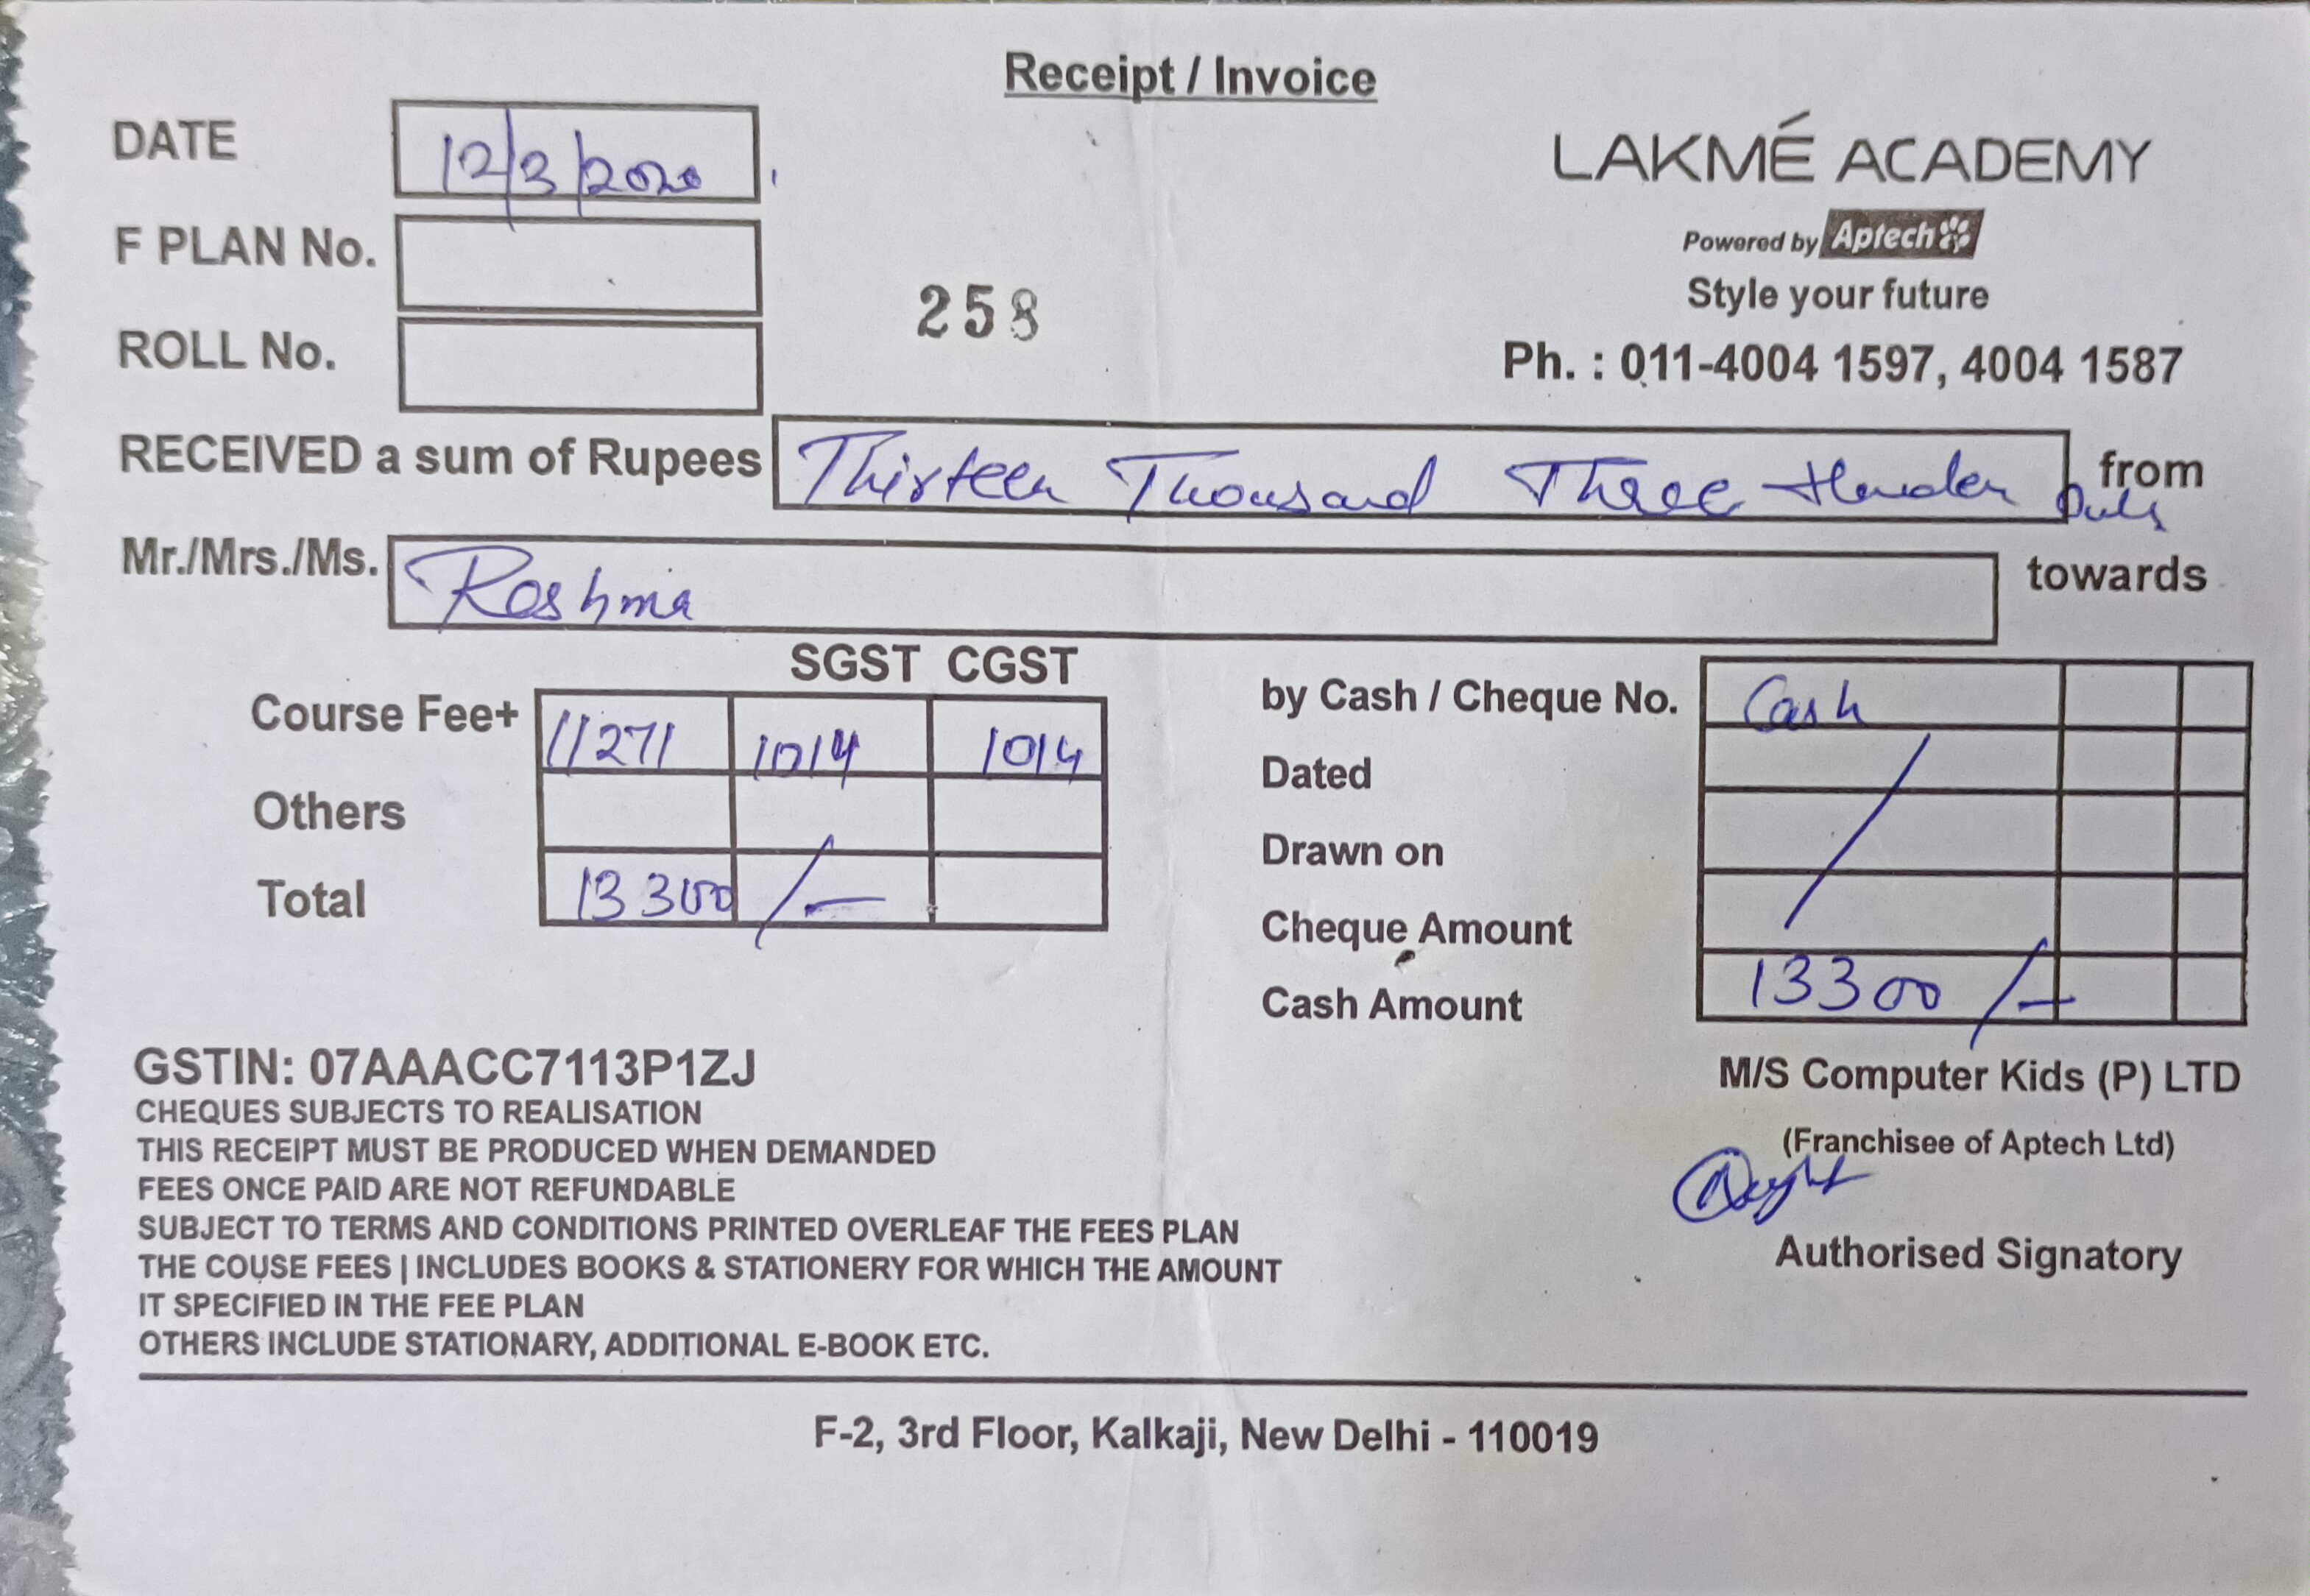 Receipt / Invoice
DATE 12/3/2020
LAKMÉ ACADEMY
Powered by Aptech
Style your future
F PLAN No.
258
ROLL No.
Ph. : 011-4004 1597, 4004 1587
RECEIVED a sum of Rupees Thirteen Thousand Three Hunder Only from
Mr./Mrs./Ms. Reshma towards
SGST CGST
Course Fee+ 11271 1014 1014
Others
Total 13300/-
by Cash / Cheque No. Cash
Dated
Drawn on
Cheque Amount
Cash Amount 13300/-
GSTIN: 07AAACC7113P1ZJ
CHEQUES SUBJECTS TO REALISATION
THIS RECEIPT MUST BE PRODUCED WHEN DEMANDED
FEES ONCE PAID ARE NOT REFUNDABLE
SUBJECT TO TERMS AND CONDITIONS PRINTED OVERLEAF THE FEES PLAN
THE COUSE FEES | INCLUDES BOOKS & STATIONERY FOR WHICH THE AMOUNT
IT SPECIFIED IN THE FEE PLAN
OTHERS INCLUDE STATIONARY, ADDITIONAL E-BOOK ETC.
M/S Computer Kids (P) LTD
(Franchisee of Aptech Ltd)
Authorised Signatory
F-2, 3rd Floor, Kalkaji, New Delhi - 110019